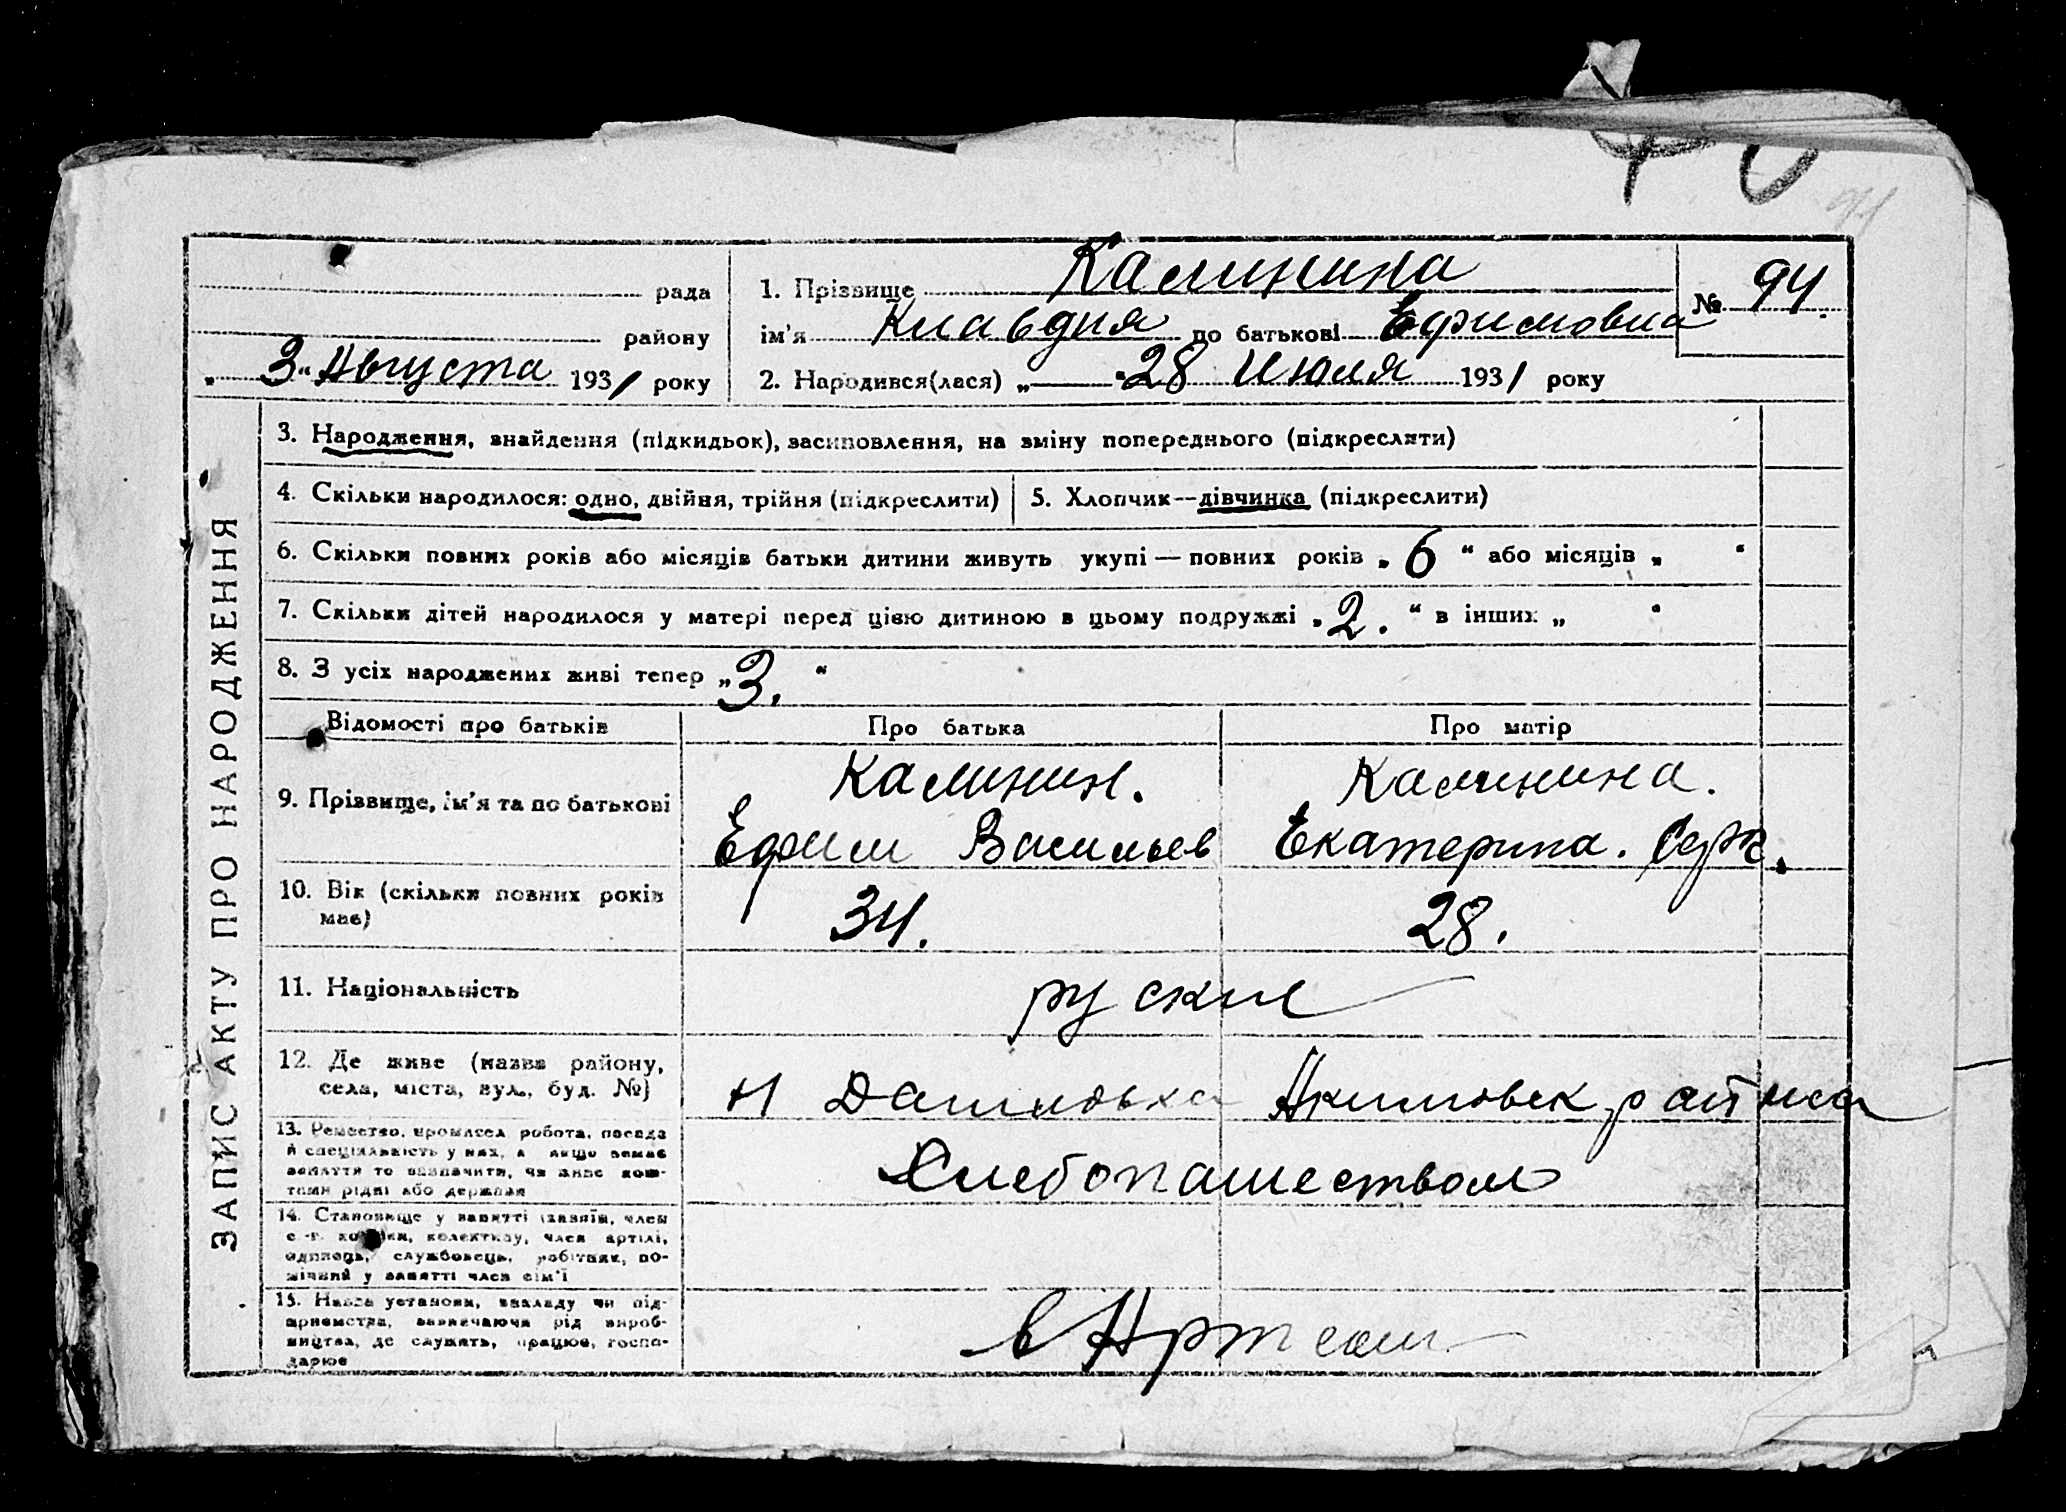 94
рада
району
„ 3 “ Августа 1931 року
1. Прізвище Калинина
ім'я Клавдия по батькові Ефимовна
№ 94.
2. Народився(лася) „—“ 28 Июля 1931 року
ЗАПИС АКТУ ПРО НАРОДЖЕННЯ
3. Народження, знайдення (підкидьок), засиповлення, на зміну попереднього (підкреслити)
4. Скільки народилося: одно, двійня, трійня (підкреслити)
5. Хлопчик—дівчинка (підкреслити)
6. Скільки повних років або місяців батьки дитини живуть укупі — повних років „ 6 “ або місяців „ “
7. Скільки дітей народилося у матері перед цією дитиною в цьому подружжі „ 2. “ в інших „ “
8. З усіх народжених живі тепер „ 3. “
Відомості про батьків
Про батька
Про матір
9. Прізвище, ім'я та по батькові
Калинин.
Ефим Васильев
Калинина.
Екатерина.
10. Вік (скільки повних років
має)
34.
28.
11. Національність
руские
12. Де живе (назва району,
села, міста, вул., буд. №)
Н Даниловка Акимовск района
13. Ремество, промисел робота, посада
й спеціяльність у них, а якщо немає
заняття то зазначити, чи живе кош-
тами рідні або держави
Хлебопашеством
14. Становище у занятті (хазяїн, член
с.-г. комуни, колективу, член артілі,
одинець, службовець, робітник, по-
мічний у занятті член сім'ї
15. Назва установи, закладу чи під-
приємства, зазначаючи рід вироб-
ництва, де служить, працює, госпо-
дарює
в Артели